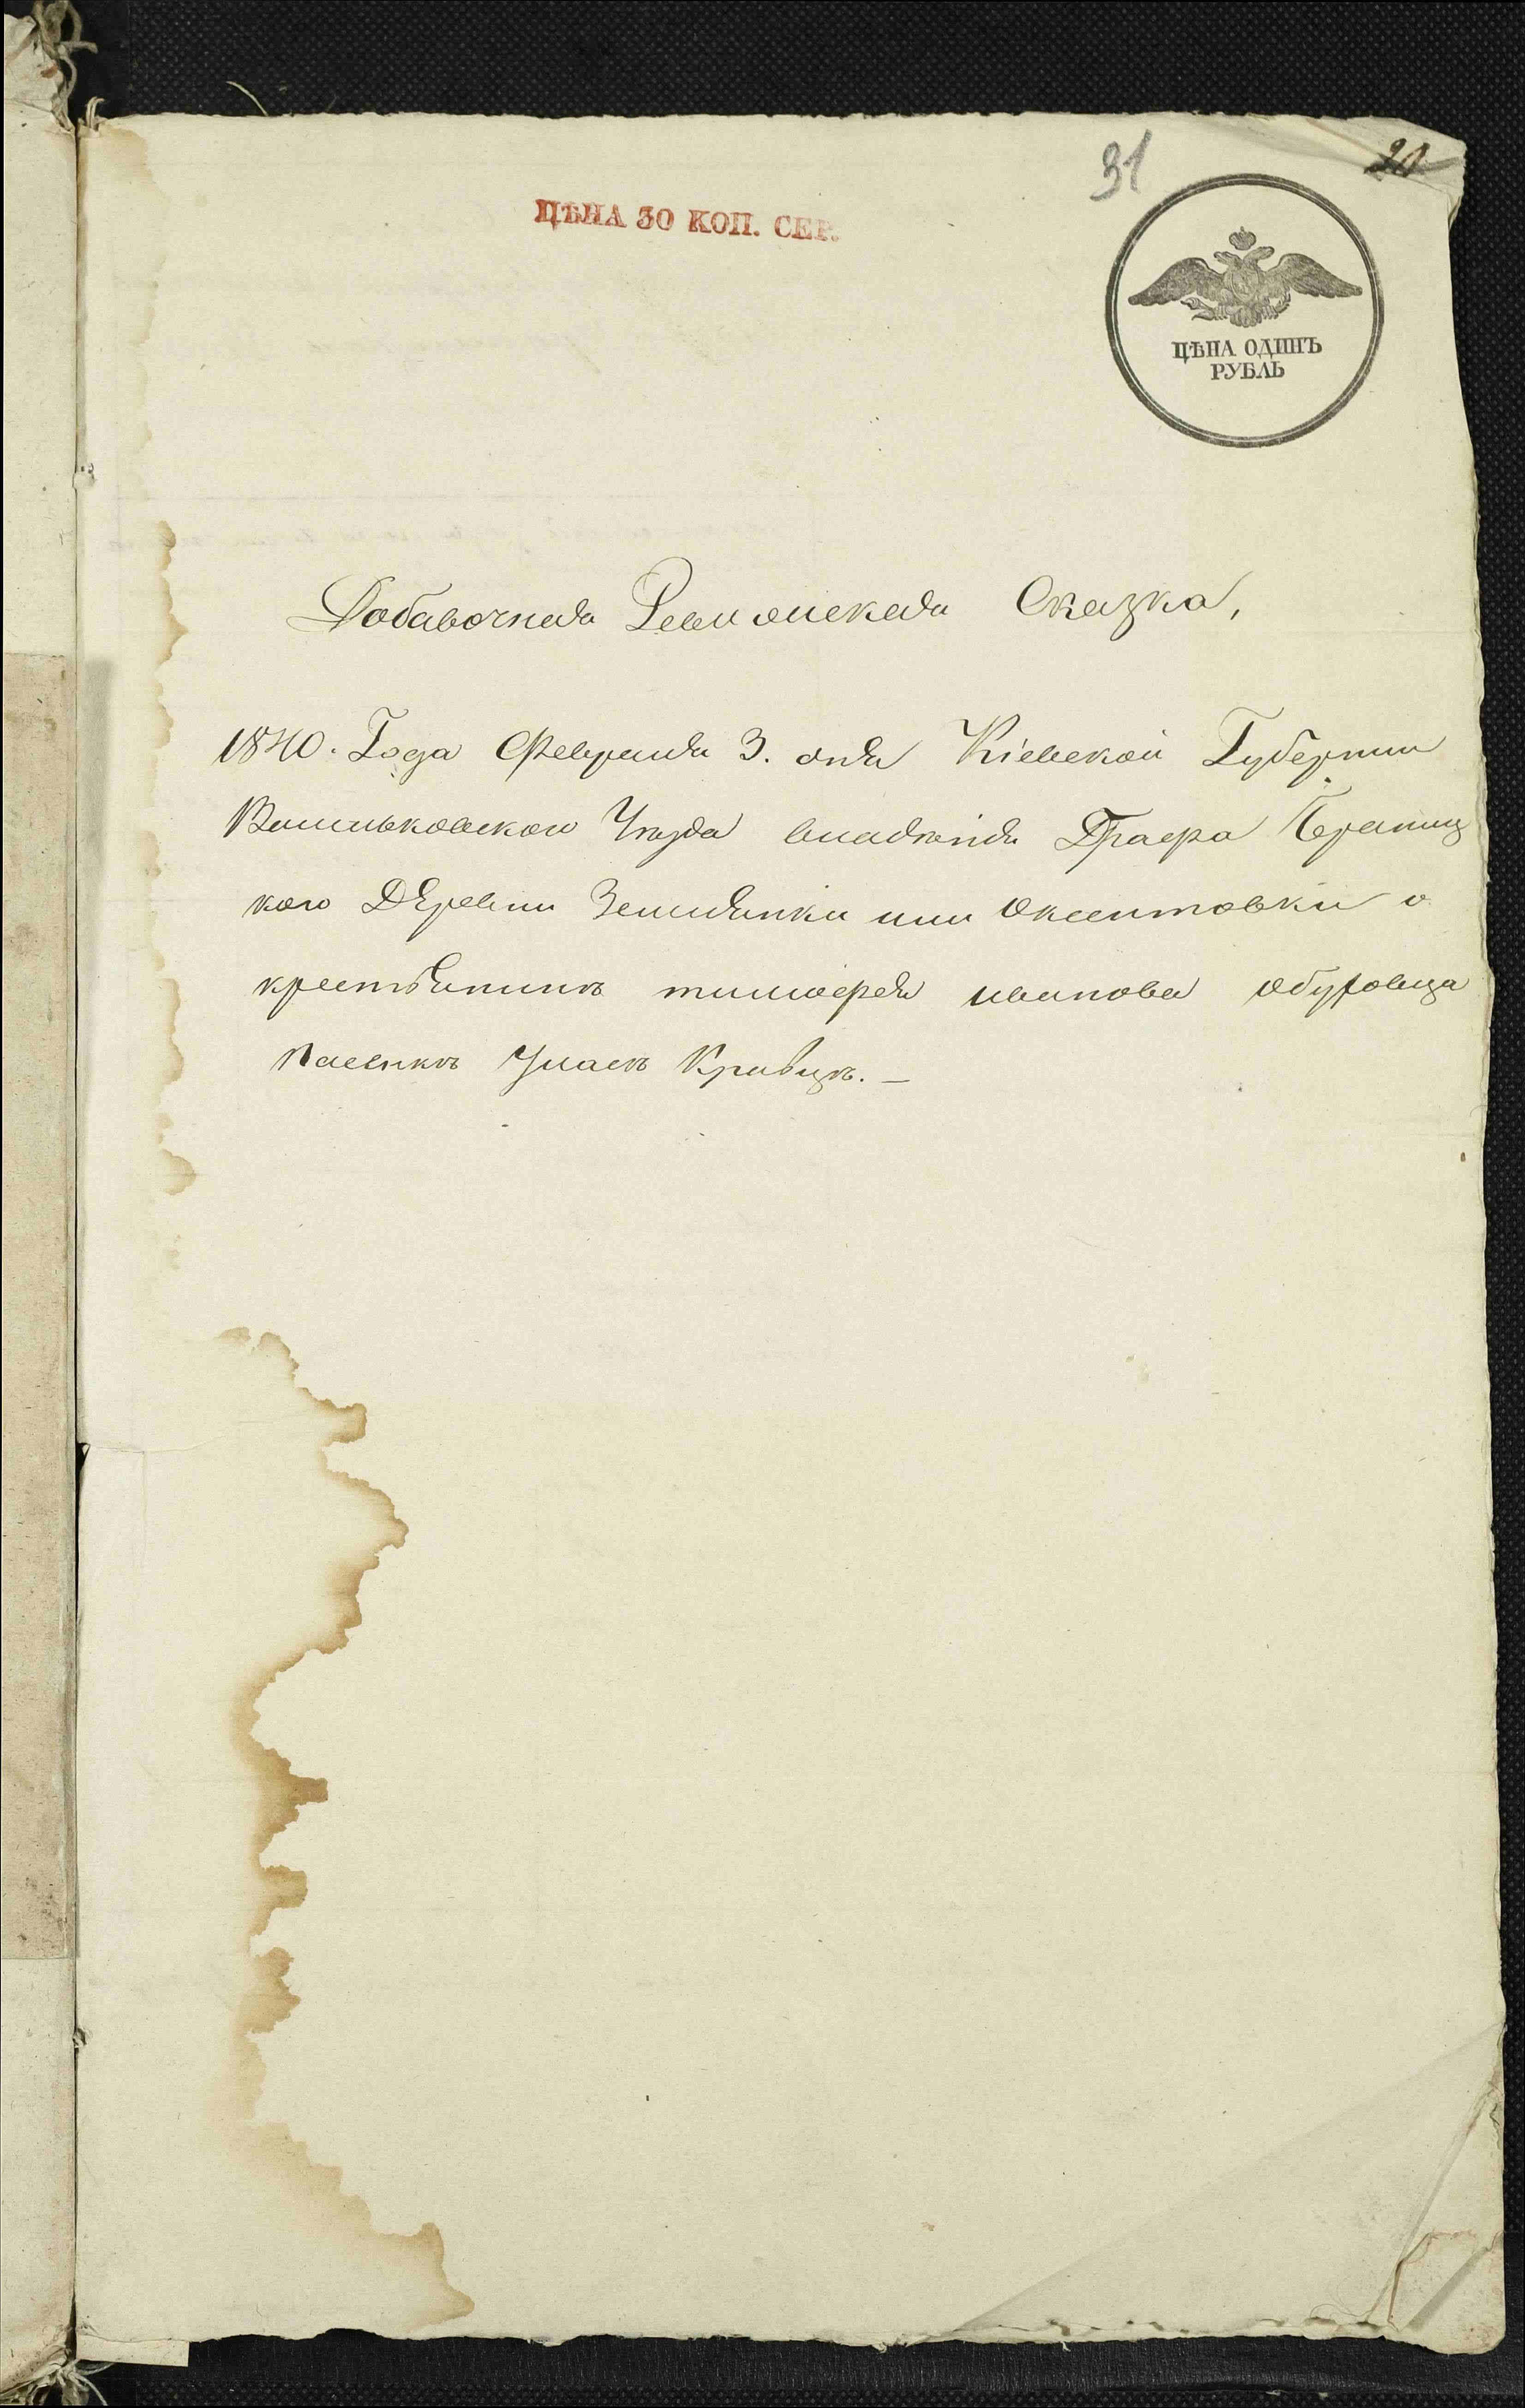 31
20
ЦѢНА 30 КОП. СЕР.
ЦѢНА ОДИНЪ
РУБЛЬ
Добавочная Ревизская Сказка,
1840. Года Февраля 3. дня Кіевской Губернии
Васильковского Уезда владѣнія Графа Браниц
кого Деревни Землянки или Оксентовки о
крестьянинѣ тимофея иванова
Улас Кравцѣ. —